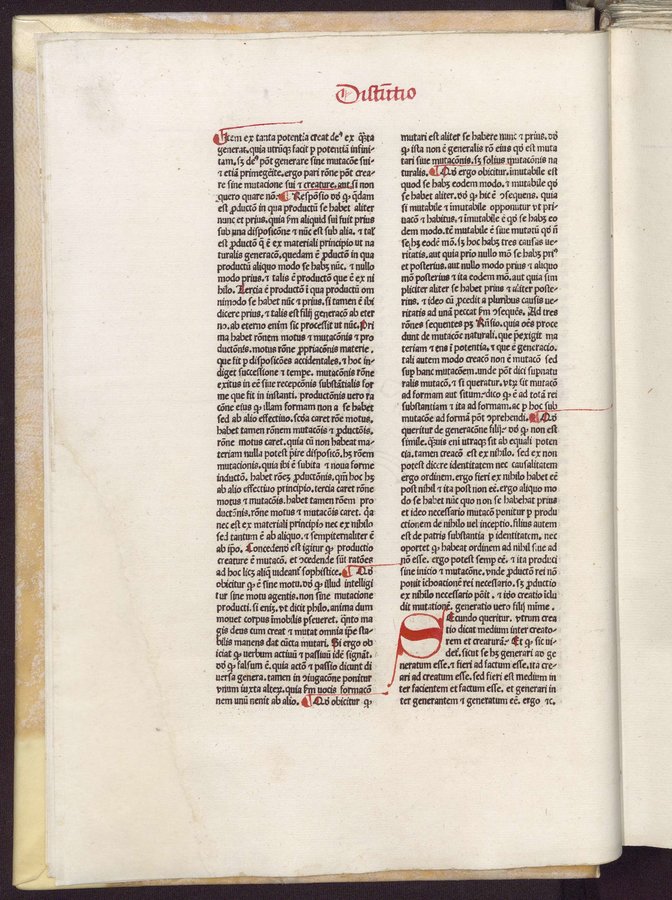 Distinctio
Item ex tanta potentia creat deꝰ ex q̃ta
generat. quia utrũq; facit ꝑ potentiã infini-
tam. sꝫ deꝰ põt generare sine mutacõne sui
⁊ etiã primegẽite. ergo pari rõne põt crea
re sine mutacione sui ⁊ creature. aut si non
quero quare nõ. Respõsio dõ ꝙ q̃dam
est ꝓductõ in qua productũ se habet aliter
nunc et prius. quia ẜm aliquid sui fuit prius
sub una disposicõne ⁊ nũc est sub alia. ⁊ tal
est ꝓductõ q̃ ẽ ex materiali principio ut na
turalis generacõ. quedam ẽ ꝓductõ in qua
productũ aliquo modo se habꝫ nũc. ⁊ nullo
modo prius. ⁊ talis ẽ productõ que ẽ ex ni
hilo. Tercia ẽ productõ ĩ qua productũ om
nimodo se habet nũc ⁊ prius. si tamen ẽ ibi
dicere prius. ⁊ talis est filij generacõ ab eter
no. ab eterno enim sic processit ut nũc. Pri
ma habet rõnem motus ⁊ mutacõnis ⁊ pro
ductõnis. motus rõne ꝓpriacõnis materie.
que fit ꝑ disposicões accidentales. ⁊ hoc in
diget successione ⁊ tempe. mutacõnis rõne
exitus in eẽ siue recepcõnis substãtialis for
me que fit in instanti. productõnis uero ra
cõne eius ꝙ illam formam non a se habet
sed ab alio effectiuo. scd̃a caret rõne motus.
habet tamen rõnem mutacõis ⁊ ꝓductõis.
rõne motus caret. quia cũ non habeat ma-
teriam nulla potest p̃ire disposicõ. hꝫ rõem
mutacionis. quia ibi ẽ subita ⁊ noua forme
inductõ. habet rõeꝫ ꝓductõnis. qm̃ hoc hꝫ
ab alio effectiuo principio. tercia caret rõne
motus ⁊ mutacõis. habet tamen rõem pro
ductõnis. rõne motus ⁊ mutacõis caret. q̃a
nec est ex materiali principio nec ex nihilo
sed tantum ẽ ab aliquo. ⁊ sempiternaliter ẽ
ab ip̃o. Concedens est igitur ꝙ productio
creature ẽ mutacõ. et ↄcedende sũt ratões
ad hoc licꝫ aliq̃ uideant̃ sophistice. Qd̃
obicitur ꝙ ẽ sine motu. dõ ꝙ illud intelligi
tur sine motu agentis. non sine mutacione
producti. si eni̅. ut dicit philo. anima dum
mouet corpus imobilis ꝑseueret. q̃nto ma
gis deus cum creat ⁊ mutat omnia ip̃e sta-
bilis manens dat cũcta mutari. Si ergo ob
iciat̃ ꝙ uerbum actiuũ ⁊ passiuũ idẽ signãt.
dõ ꝙ falsum ẽ. quia actõ ⁊ passio dicunt di
uersa genera. tamen in ↄiugacõne ponitur
unum iuxta alteꝝ. quia ẜm uocis formacõ
nem unũ uenit ab alio. Qd̃ obicitur ꝙ
mutari est aliter se habere nunc ⁊ prius. dõ
ꝙ ista non ẽ generalis rõ eius qd̃ est muta
tari siue mutacõnis. sꝫ solius mutacõnis na
turalis. Qd̃ ergo obicitur. imutabile est
quod se habꝫ eodem modo. ⁊ mutabile qd̃
se habet aliter. dõ ꝙ hic ẽ ↄsequens. quia
si mutabile ⁊ imutabile opponũtur ut pri-
uacõ ⁊ habitus. ⁊ imutabile ẽ qd̃ se habꝫ eo
dem modo. tẽ mutabile ẽ siue mutacũ qd̃ ñ
se hꝫ eodẽ mõ. sꝫ hoc habꝫ tres causas ue-
ritatis. aut quia prio nullo mõ se habꝫ priꝰ
et posterius. aut nullo modo prius ⁊ aliquo
mõ posterius ⁊ ita eodem mõ. aut quia sim
pliciter aliter se habet prius ⁊ aliter poste-
rius. ⁊ ideo cũ ꝓcedit a pluribus causis ue-
ritatis ad unã peccat ẜm ↄsequẽs. Ad tres
rõnes sequentes pꝫ Rñsio. quia oẽs proce
dunt de mutacõe naturali. que p̃exigit ma
teriam ⁊ ens ĩ potentia. ⁊ que ẽ generacio.
tali autem modo creacõ non ẽ mutacõ sed
sup hanc mutacõem. unde põt dici sup̃natu
ralis mutacõ. ⁊ si queratur. utꝝ sit mutacõ
ad formam aut situm. dico ꝙ ẽ ad totã rei
substantiam ⁊ ita ad formam. ac ꝑ hoc sub
mutacõe ad formã põt ↄprehendi. Qd̃
queritur de generacõne filij. dõ ꝙ non est
simile. q̃uis eni utraq; sit ab equali poten
cia. tamen creacõ est ex nihilo. sed ex non
potest dicere identitatem nec causalitatem
ergo ordinem. ergo fieri ex nihilo habet eẽ
post nihil ⁊ ita post non eẽ. ergo aliquo mo
do se habet nũc quo non se habebat prius
et ideo necessario mutacõ ponitur ꝑ produ
ctionem de nihilo uel inceptio. filius autem
est de patris substantia ꝑ identitatem. nec
oportet ꝙ habeat ordinem ad nihil siue ad
nõ esse. ergo potest semp eẽ. ⁊ ita produci
sine inicio ⁊ mutacõne. unde ꝓductõ rei nõ
ponit ĩchoacionẽ rei necessario. sꝫ ꝓductio
ex nihilo necessario põit. ⁊ ido creatio iclu
dit mutationẽ. generatio uero filij mĩme.
Secundo queritur. utrum crea
tio dicat medium inter creato-
rem et creaturã. Et ꝙ sic ui-
det̃. sicut se hꝫ generari ad ge
neratum esse. ⁊ fieri ad factum esse. ita cre-
ari ad creatum esse. sed fieri est medium in
ter facientem et factum esse. et generari in
ter generantem ⁊ generatum eẽ. ergo ⁊c.